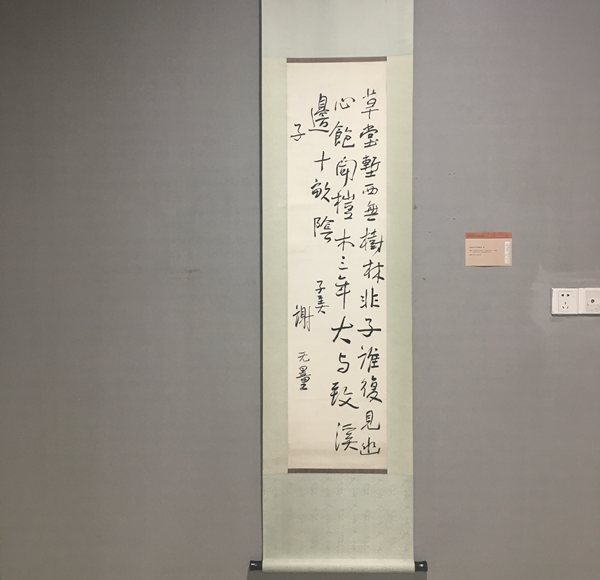 草堂塹西無樹林非子誰復見幽
心飽聞榿木三年大与致溪
邊十畝陰
子美
子
謝无量